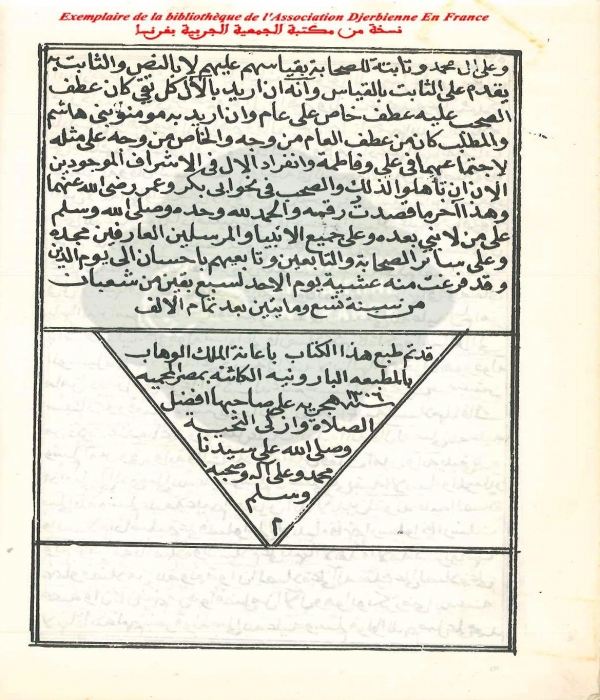 Exemplaire de la bibliothèque de l'Association Djerbienne En France
نسخة من مكتبة الجمعية الجربية بفرنسا
وعلى ال محمد وثابتة للصحابة بقياسهم عليهم لا بالنص والثابت به
يقدم على الثابت بالقياس وانه ان اريد بالآل كل تقي كان عطف
الصحب عليه عطف خاص على عام وان اريد به مومنو بني هاشم
والمطلب كان من عطف العام من وجه والخاص من وجه على مثله
لاجتماعهما في على وفاطمة وانفراد الال في الاشراف الموجودين
الان ان تأهلوا لذلك والصحب في نحو ابى بكر وعمر رضى الله عنهما
وهذا آخر ما قصدت رقمه والحمد لله وحده وصلى الله وسلم
على من لا نبي بعده وعلى جميع الانبيا والمرسلين العارفين مجده
وعلى سائر الصحابة والتابعين وتابعيهم باحسان الى يوم الدين
وقد فرغت منه عشية يوم الاحد لسبع بقين من شعبان
من سنة تسع ومايتين بعد تمام الالف
قد تم طبع هذا الكتاب باعانة الملك الوهاب
بالمطبعه البارونيه الكائنه بمصر المحميه
سنة ١٣٠٦ هجريه على صاحبها افضل
الصلاة وازكى التحية
وصلى الله على سيدنا
محمد وعلى آله وصحبه
وسلم
م